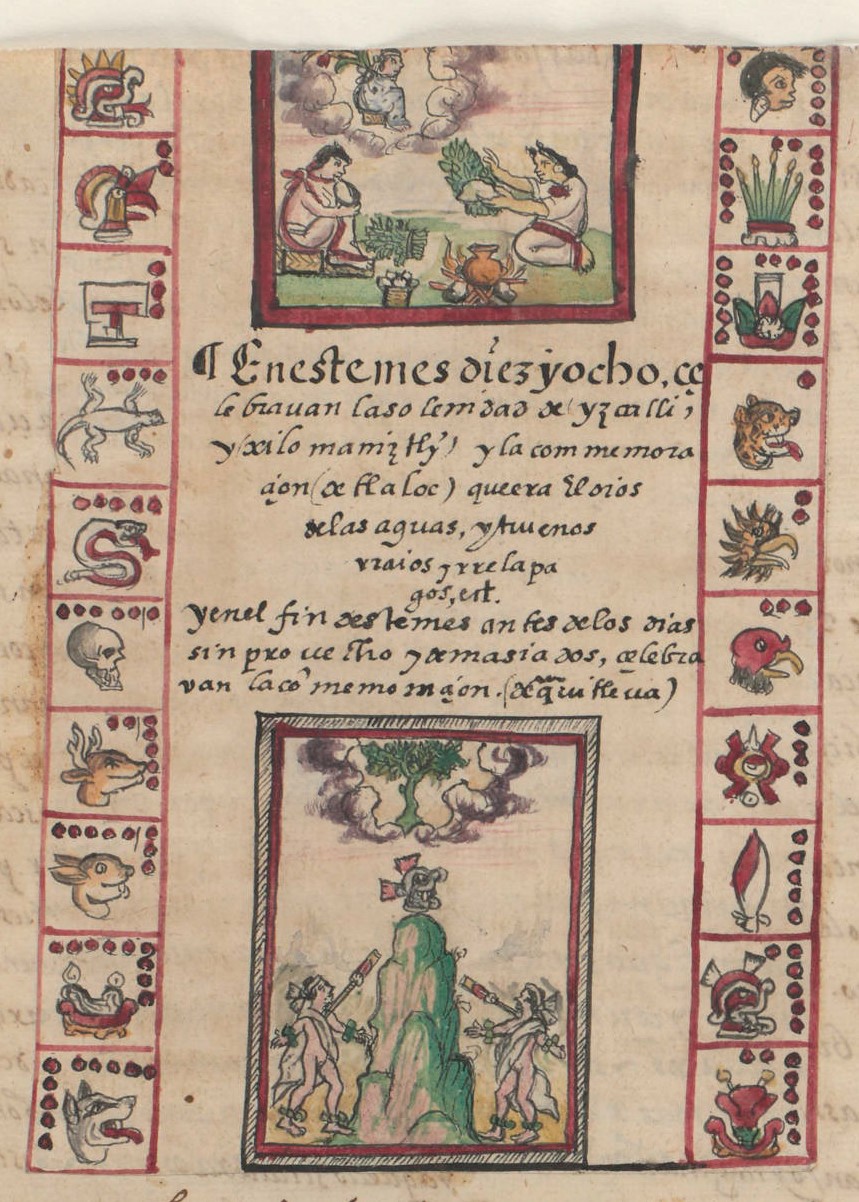 ¶ Enestemes diezyocho, çe
lebravan lasolemdad de (yzcalli,
y (xilomaniztly) y la commemora
çion (de tlaloc) queera El dios
delas aguas, ytruenos
rraios yrrelapa
gos, ect.
yenel fin destemes antes delos dias
sin provecho ydemasiados, çelebra
van lacomemoraçion. (de quitleua)